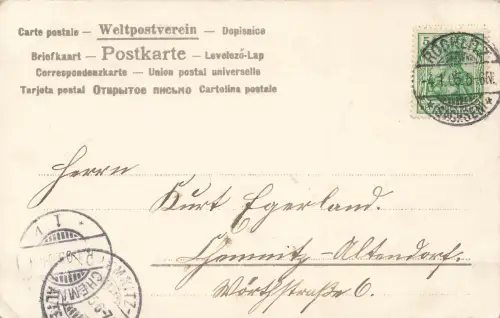 Carte postale — Weltpostverein — Dopisnice
Briefkaart — Postkarte — Levelező-Lap
Correspondenzkarte — Union postal universelle
Tarjeta postal Открытое письмо Cartolina postale
5
ROCHLITZ
*(SACHSEN)*
Herrn
Kurt Egerland.
Chemnitz-Altendorf.
Wörthstraße 6.